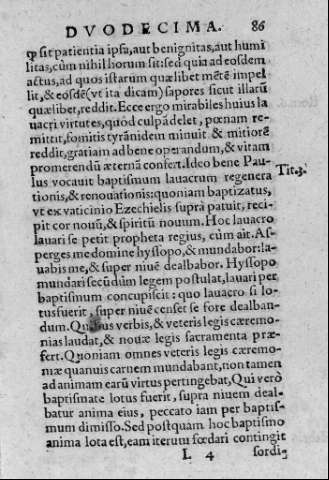 DVODECIMA. 86
ꝙ sit patientia ipsa, aut benignitas, aut humi
litas, cùm nihil horum sit: sed quia ad eosdem
actus, ad quos istarum quælibet mẽtẽ impel
lit, & eosdẽ (vt ita dicam) sapores sicut illarũ
quælibet, reddit. Ecce ergo mirabiles huius la
uacri virtutes, quòd culpã delet, pœnam re-
mittit, fomitis tyrãnidem minuit & mitiorẽ
reddit, gratiam ad bene operandum, & vitam
promerendũ æternã confert. Ideo bene Pau-
lus vocauit baptismum lauacrum regenera Tit.3.
tionis, & renouationis: quoniam baptizatus,
vt ex vaticinio Ezechielis suprà patuit, reci-
pit cor nouũ, & spiritũ nouum. Hoc lauacro
lauari se petit propheta regius, cùm ait. As-
perges me domine hyssopo, & mundabor: la-
uabis me, & super niuẽ dealbabor. Hyssopo
mundari secũdùm legem postulat, lauari per
baptismum concupiscit: quo lauacro si lo-
tus fuerit, super niuẽ censet se fore dealban-
dum. Quibus verbis, & veteris legis cæremo-
nias laudat, & nouæ legis sacramenta præ-
fert. Quoniam omnes veteris legis cæremo-
niæ quanuis carnem mundabant, non tamen
ad animam earũ virtus pertingebat, Qui verò
baptismate lotus fuerit, supra niuem deal-
batur anima eius, peccato iam per baptis-
mum dimisso. Sed postquam hoc baptismo
anima lota est, eam iterum fœdari contingit
L 4 sordi-